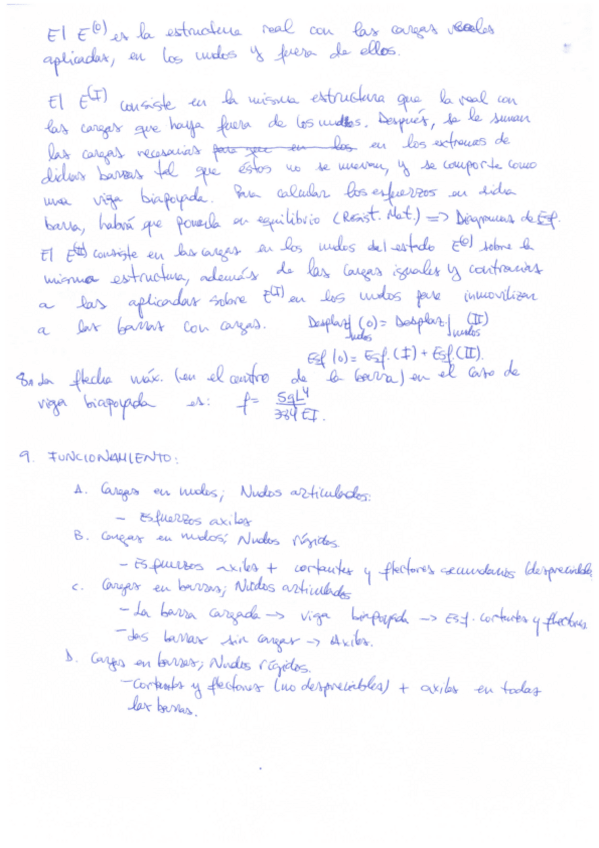 El E(0) es la estructura real con las cargas reales
aplicadas, en los nudos y fuera de ellos.
El E(I) consiste en la misma estructura que la real con
las cargas que haya fuera de los nudos. Después, se le suman
las cargas necesarias para que en los en los extremos de
dichas barras tal que éstos no se muevan, y se comporte como
una viga biapoyada. Para calcular los esfuerzos en dicha
barra, habrá que ponerla en equilibrio (Resist. Mat.) => Diagramas de Esf.
El E(II) consiste en las cargas en los nudos del estado E(0) sobre la
misma estructura, además de las cargas iguales y contrarias
a las aplicadas sobre E(I) en los nudos para inmovilizar
a las barras con cargas. Desplaz|nudos (0) = Desplaz.|nudos (II)
Esf (0) = Esf. (I) + Esf (II).
8. La flecha máx. (en el centro de la barra) en el caso de
viga biapoyada es: f = 5qL⁴/384 EI.
9. FUNCIONAMIENTO:
A. Cargas en nudos; Nudos articulados.
- Esfuerzos axiles
B. Cargas en nudos; Nudos rígidos.
- Esfuerzos axiles + cortantes y flectores secundarios (despreciables
C. Cargas en barras; Nudos articulados
- La barra cargada -> viga biapoyada -> Esf. cortantes y flectores.
- Las barras sin cargas -> Axiles.
D. Cargas en barras; Nudos rígidos.
- Cortantes y flectores (no despreciables) + axiles en todas
las barras.